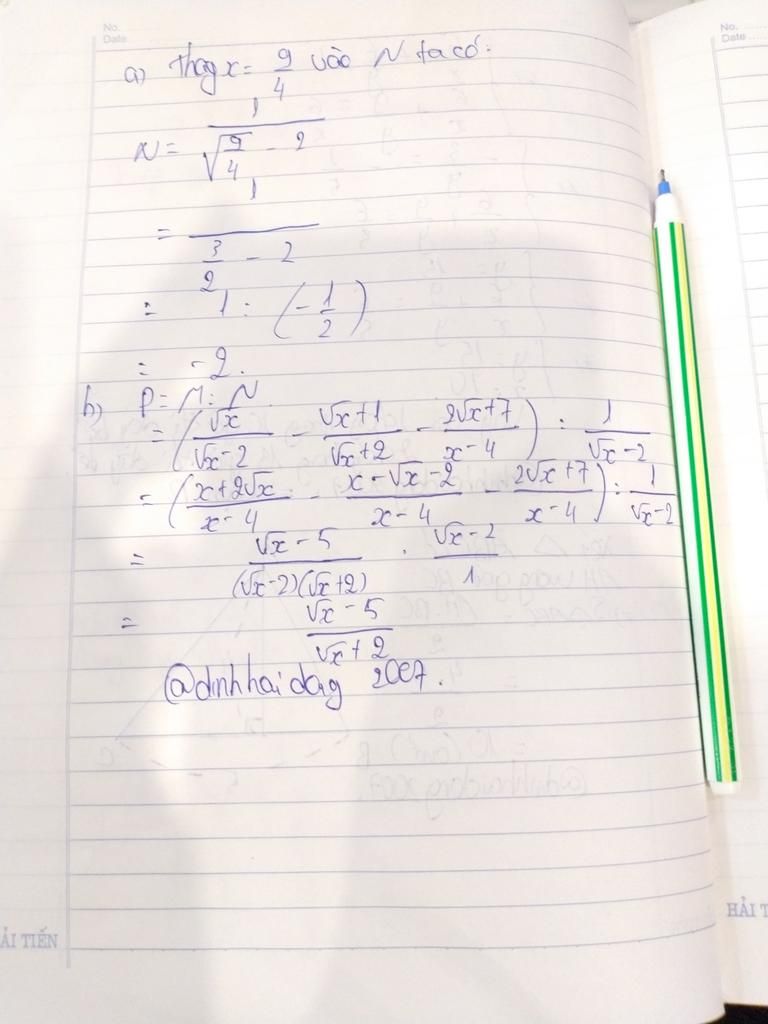 No.
Date
No.
Date
a) Thay x = 9/4 vào N ta có:
N = 1/(√(9/4) - 2)
= 1/(3/2 - 2)
= 1 : (-1/2)
= -2.
b) P = M : N
= (√x/(√x-2) - (√x+1)/(√x+2) - (2√x+7)/(x-4)) : 1/(√x-2)
= ((x+2√x)/(x-4) - (x-√x-2)/(x-4) - (2√x+7)/(x-4)) : 1/(√x-2)
= (√x-5)/((√x-2)(√x+2)) . (√x-2)/1
= (√x-5)/(√x+2)
@dinhhaidag 2007.
ẢI TIẾN
HẢI T